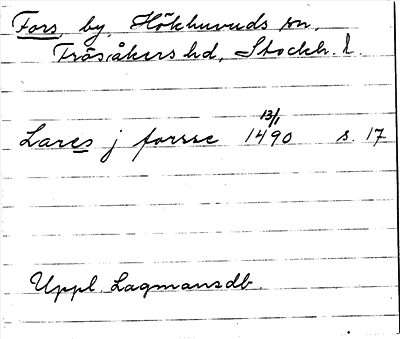 Fors, by, Hökhuvuds sn,
Frösåkers hd, Stockh. l.
13/1
Lares j forsse 1490 s. 17
Uppl. Lagmansdb.